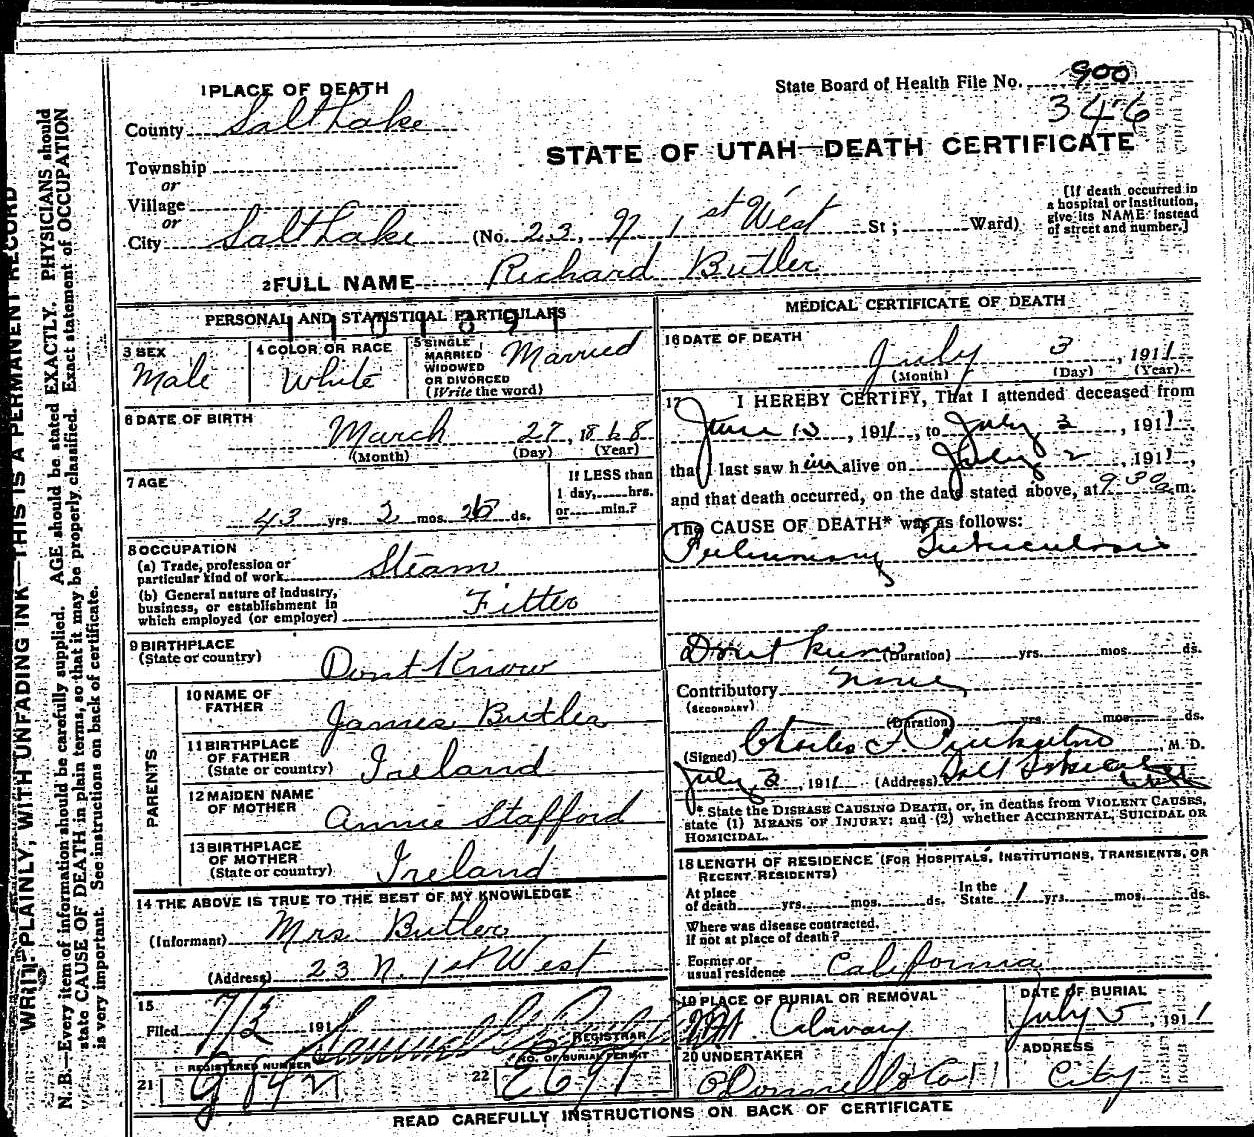 1 PLACE OF DEATH
State Board of Health File No. 900
346
County Salt Lake
STATE OF UTAH—DEATH CERTIFICATE
Township
or
Village
or
City Salt Lake (No. 23. N 1st West St; Ward)
(If death occurred in
a hospital or institution,
give its NAME instead
of street and number.]
2 FULL NAME Richard Butler
PERSONAL AND STATISTICAL PARTICULARS
1101891
3 SEX
Male
4 COLOR OR RACE
White
5 SINGLE
MARRIED
WIDOWED
OR DIVORCED
(Write the word)
Married
6 DATE OF BIRTH
March 27, 1868
(Month) (Day) (Year)
7 AGE
43 yrs. 2 mos. ds.
If LESS than
1 day, hrs.
or min.?
8 OCCUPATION
(a) Trade, profession or
particular kind of work Steam
(b) General nature of industry,
business, or establishment in
which employed (or employer) Fitter
9 BIRTHPLACE
(State or country) Dont Know
PARENTS
10 NAME OF
FATHER James Butler
11 BIRTHPLACE
OF FATHER
(State or country) Ireland
12 MAIDEN NAME
OF MOTHER Annie Stafford
13 BIRTHPLACE
OF MOTHER
(State or country) Ireland
14 THE ABOVE IS TRUE TO THE BEST OF MY KNOWLEDGE
(Informant) Mrs Butler
(Address) 23 N. 1st West
15
Filed 7/3 191
REGISTRAR
REGISTERED NUMBER
21
NO. OF BURIAL PERMIT
22
MEDICAL CERTIFICATE OF DEATH
16 DATE OF DEATH
July 3, 1911
(Month) (Day) (Year)
17 I HEREBY CERTIFY, That I attended deceased from
June 13, 1911, to July 2, 1911,
that I last saw him alive on July 2, 1911,
and that death occurred, on the date stated above, at 9 30 a.m.
The CAUSE OF DEATH* was as follows:
Pulmonary Tuberculosis
Dont know (Duration) yrs. mos. ds.
Contributory None
(SECONDARY)
(Duration) yrs. mos. ds.
(Signed) Charles F. M. D.
July 3, 1911 (Address) Salt Lake City
* State the DISEASE CAUSING DEATH, or, in deaths from VIOLENT CAUSES,
state (1) MEANS OF INJURY; and (2) whether ACCIDENTAL, SUICIDAL OR
HOMICIDAL.
18 LENGTH OF RESIDENCE (FOR HOSPITALS, INSTITUTIONS, TRANSIENTS, OR
RECENT RESIDENTS)
At place
of death yrs. mos. ds.
In the
State 1 yrs. mos. ds.
Where was disease contracted,
if not at place of death?
Former or
usual residence California
19 PLACE OF BURIAL OR REMOVAL
Mt Calvary
DATE OF BURIAL
July 5, 1911
20 UNDERTAKER
O'Donnell & Co
ADDRESS
City
READ CAREFULLY INSTRUCTIONS ON BACK OF CERTIFICATE
WRITE PLAINLY, WITH UNFADING INK—THIS IS A PERMANENT RECORD
N. B.—Every item of information should be carefully supplied. AGE should be stated EXACTLY. PHYSICIANS should
state CAUSE OF DEATH in plain terms, so that it may be properly classified. Exact statement of OCCUPATION
is very important. See instructions on back of certificate.